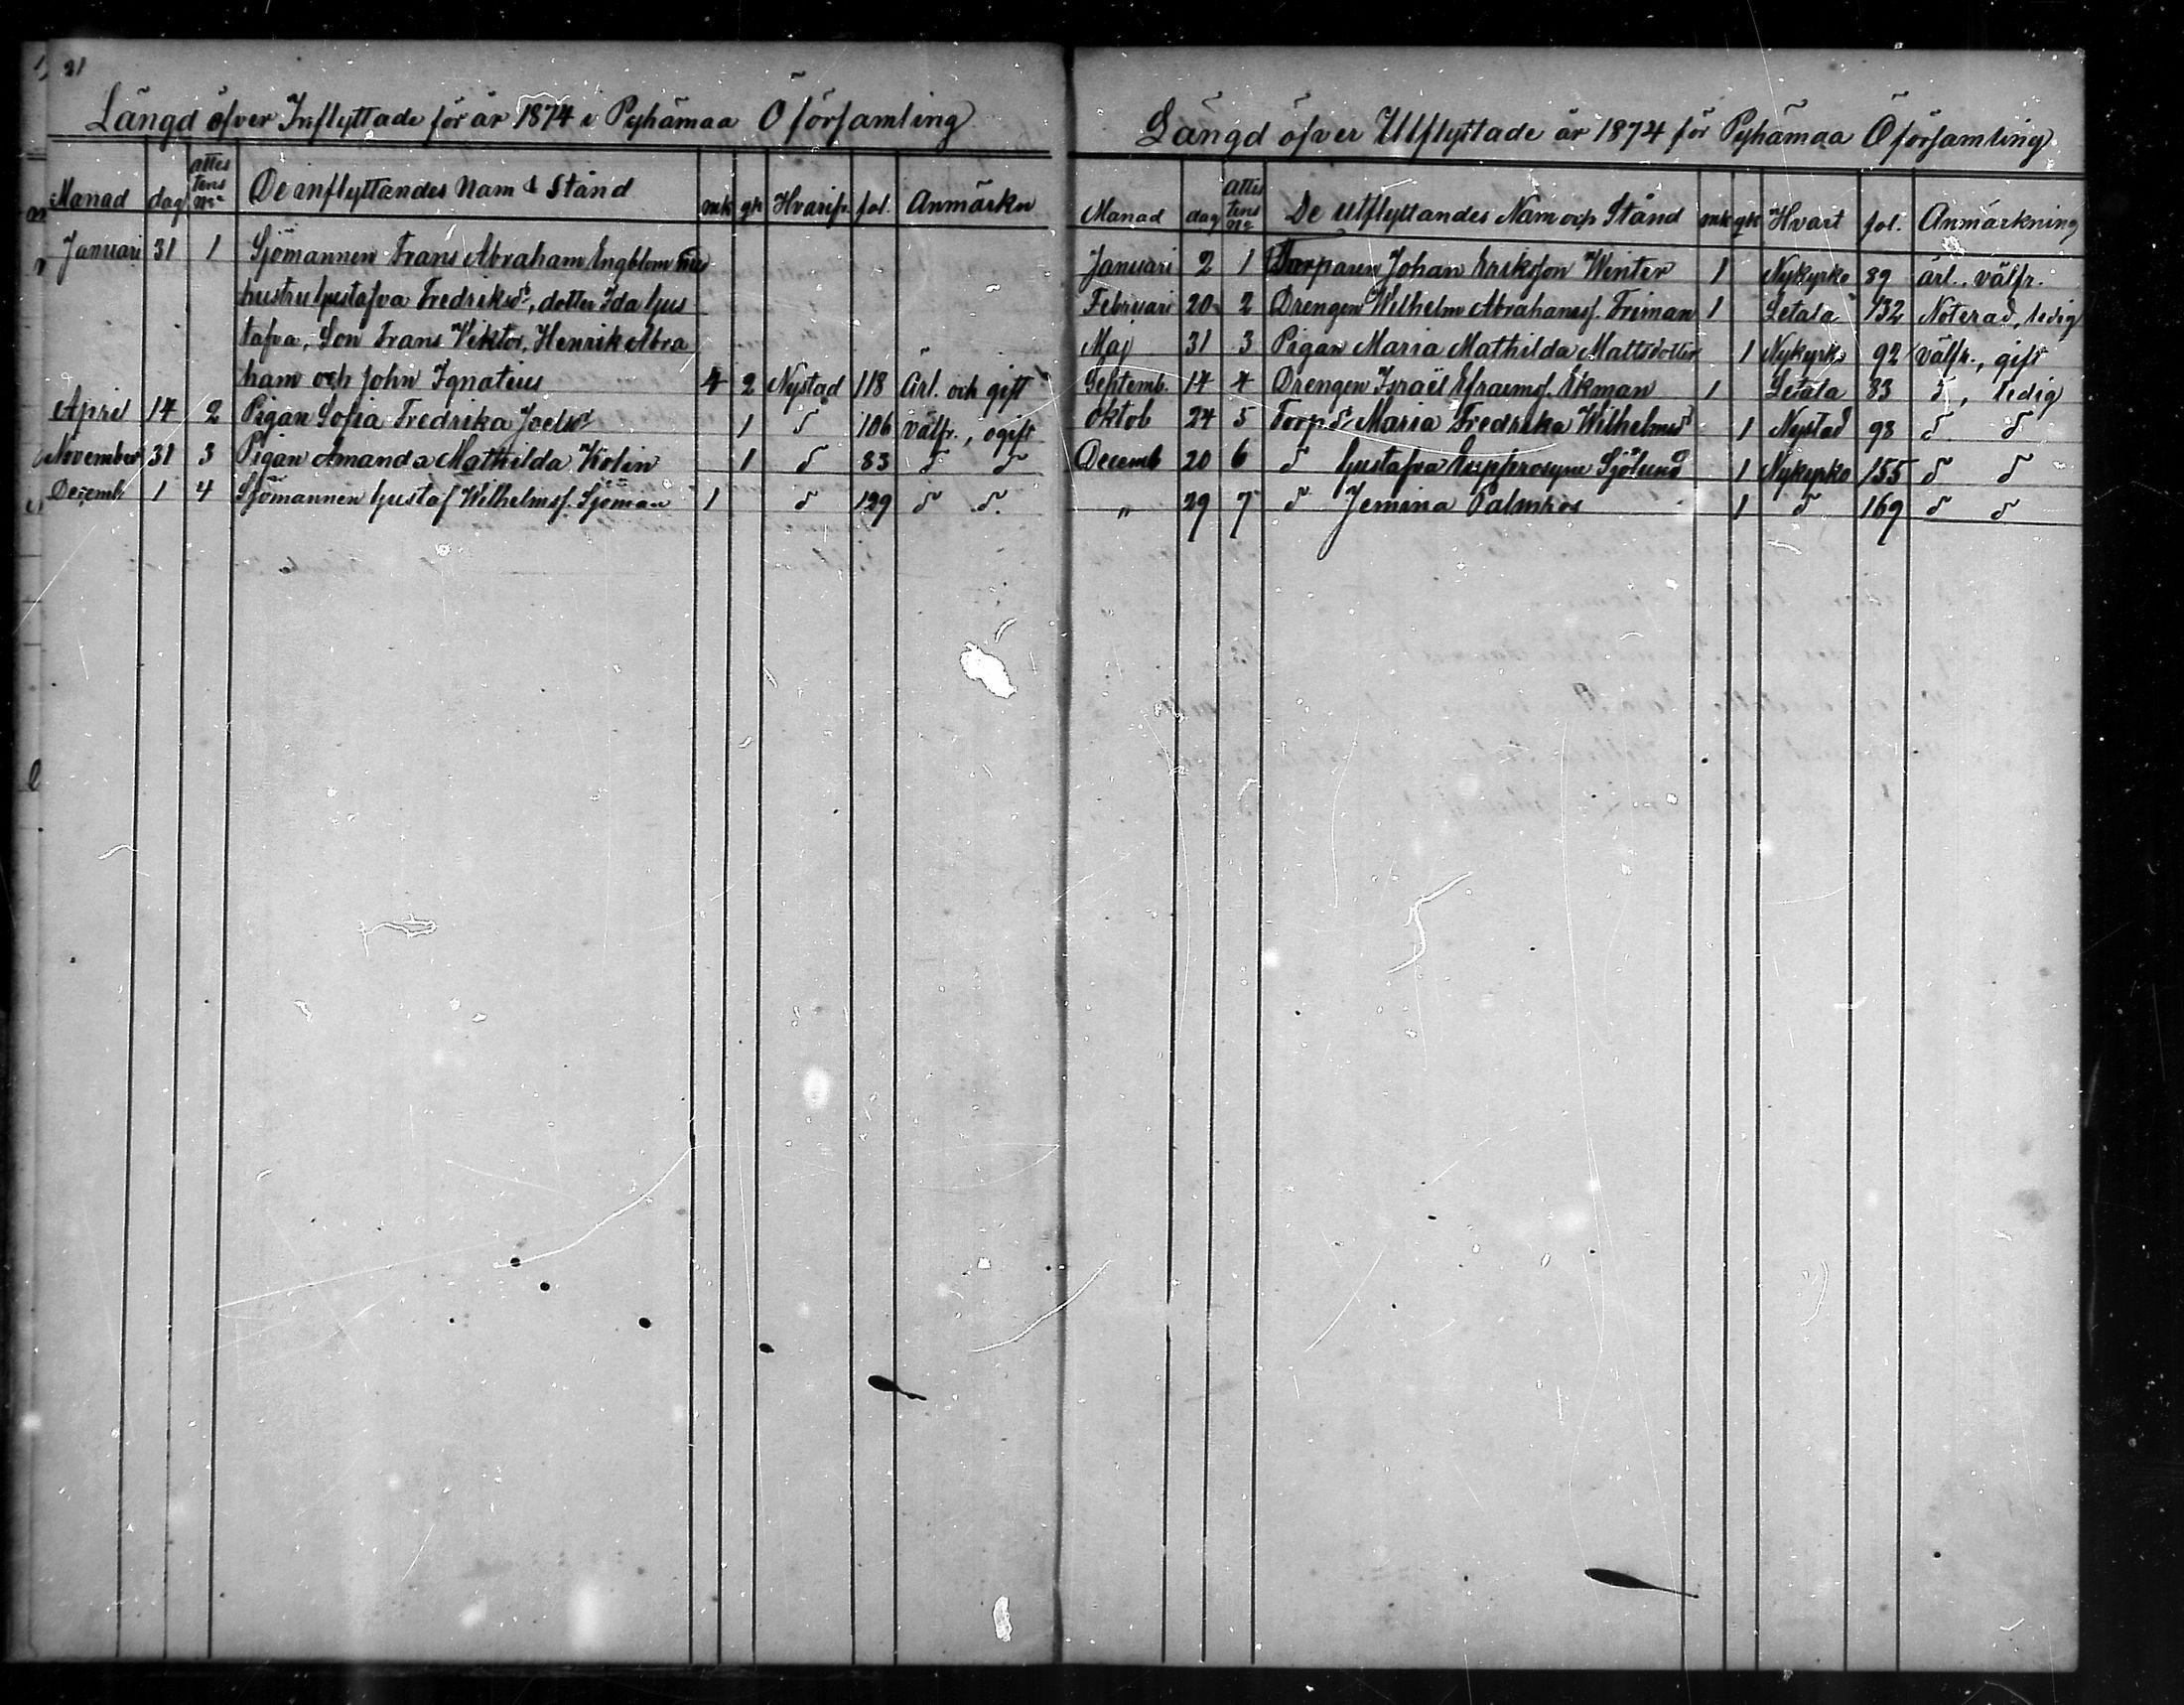 21
Längd öfver Inflyttade för år 1874 i Pyhämaa Ö församling
Månad dag attestens No De inflyttandes Nam & Stånd mk qk Hvarifr. fol. Anmärkn
Januari 31 1 Sjömannen Frans Abraham Engblom med
hustru Gustafva Fredriksd:, dotter Ida Gus
tafva, Son Frans Viktor, Henrik Abra
ham och John Ignatius 4 2 Nystad 118 Ärl. och gift
April 14 2 Pigan Sofia Fredrika Joelsd 1 d 106 välfr., ogift
November 31 3 Pigan Amanda Mathilda Kolin 1 d 83 d d
Decemb 1 4 Sjömannen Gustaf Wilhelmsf. Sjöman 1 d 129 d d.
Längd öfver Utflyttade år 1874 för Pyhämaa Ö församling
Månad dag attestens No De utflyttandes Nam och Stånd mk qk Hvart fol. Anmärkning
Januari 2 1 Torparen Johan Eriksson Winter 1 Nykyrko 89 ärl.. välfr.
Februari 20 2 Drengen Wilhelm Abrahamsf. Friman 1 Letala 132 Noterad, ledig
Maj 31 3 Pigan Maria Mathilda Mattsdotter 1 Nykyrk. 92 välfr., gift
Septemb. 14 4 Drengen Israël Efraimsf. Ekman 1 Letala 83 d, ledig
Oktob 24 5 Torp.d. Maria Fredrika Wilhelmsd 1 Nystad 98 d d
Decemb 20 6 d Gustafva Eupfrosyne Sjölund 1 Nykyrko 155 d d
„ 29 7 d Jemina Palmros 1 d 169 d d